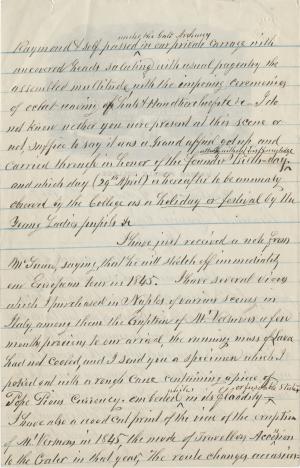 under the Gate Archway
Raymond & self passed in our private Carriage with
uncovered heads saluting with usual pageantry the
assembled multitude with the imposing ceremonies
of eclat waving of Hats & Handkerchiefs &c - I do
not know wether you were present at this scene or
not, suffice to say it was a grand affair got up and
carried through in honor of the founders birth-day
and which day (29th April) is hereafter to be annualy
observed by the College as a holiday or festival by the
Young Ladies pupils &c
I have just received a note from
Mr saying that he will sketch off immediately
our European tour in 1845. I have several views
which I purchased in Naples of various scenes in
Italy among them the Eruption of Mt Vesuvius a few
months previous to our arrival, the running mass of lava
had not cooled, and I send you a specimen which I
poked out with a rough cane containing a piece of
Pope Pious Currency - embeded in its
I have also a wood cut print of the view of the eruption
of Mt. Vesuvius in 1845, the mode of Travellers Accession
to the Crater in that year, The route changes occasion